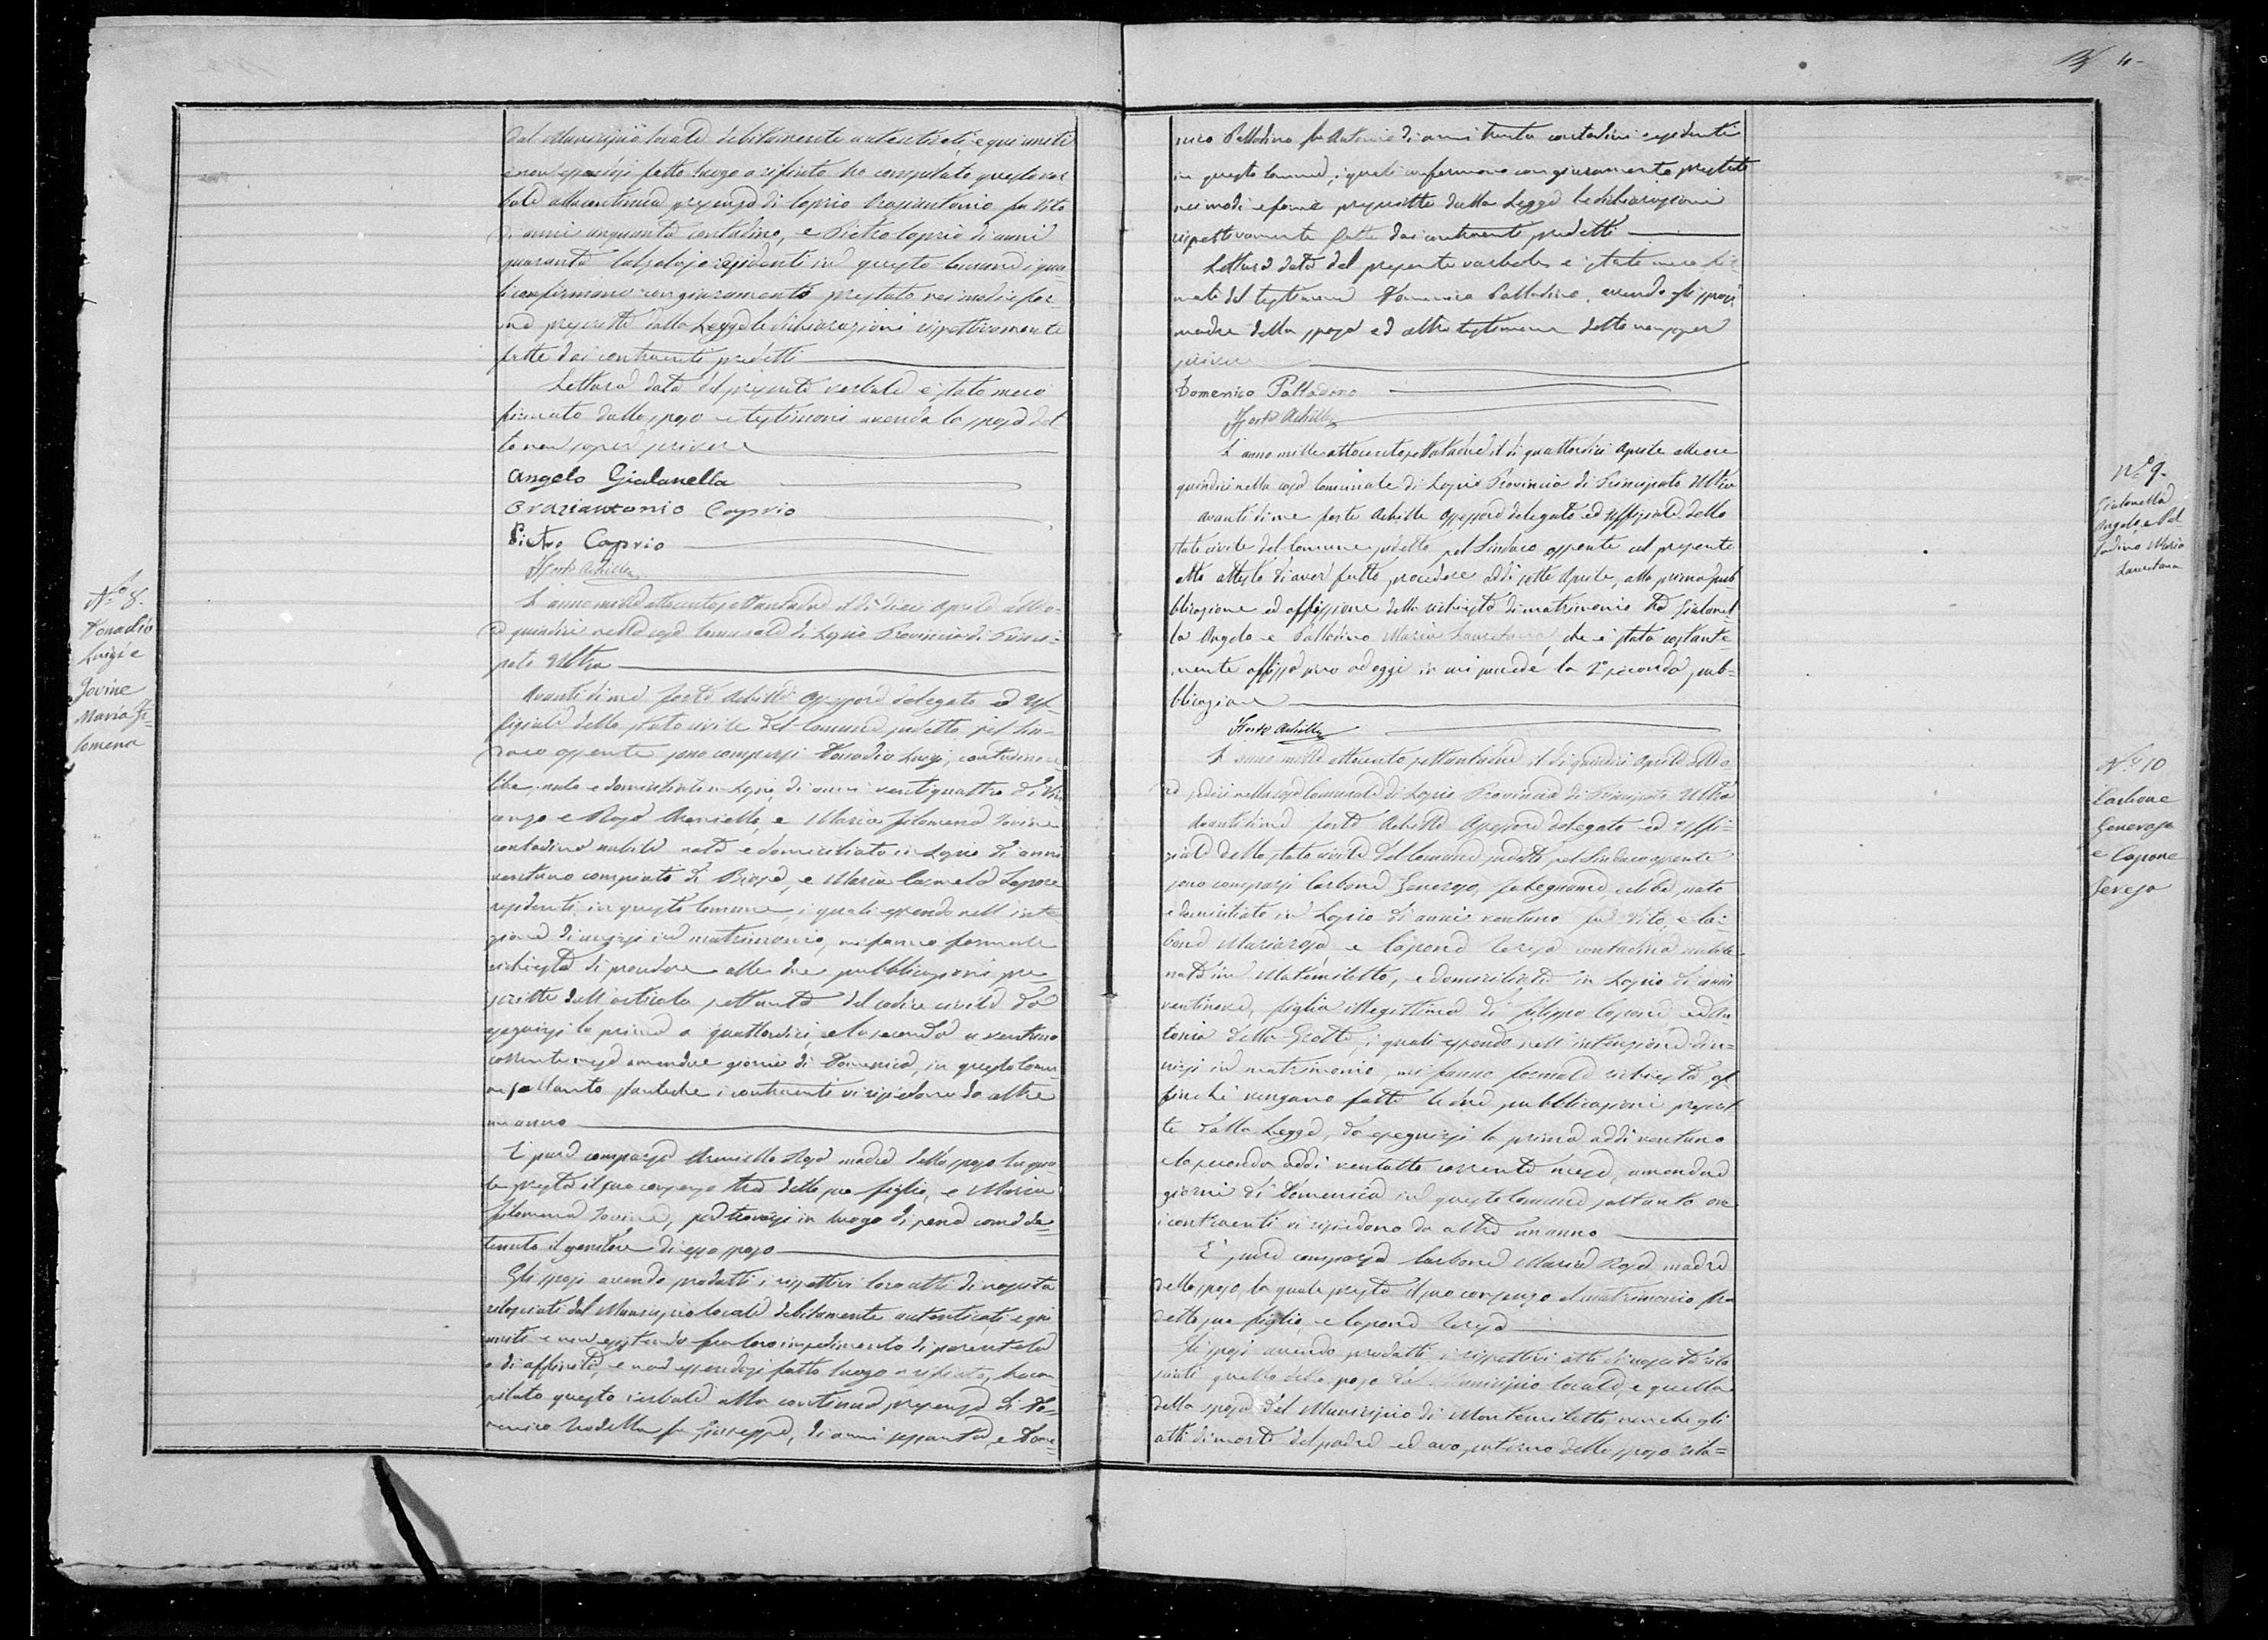 dal Municipio locale debitamente autenticati e qui uniti
e non essendosi fatto luogo a rifiuto ho compilato questo ver
bale alla continua presenza di Caprio Oraziantonio fu Vito
di anni cinquanta contadino, e Pietro Caprio di anni
quaranta calzolajo residenti in questo Comune i qua
li confirmano con giuramento prestato nei modi e for
me prescritte dalla Legge le dichiarazioni rispettivamente
fatte dai contraenti predetti
Lettura data del presente verbale è stato meco
firmato dallo sposo e testimoni avendo la sposa det
to non saper scrivere
Angelo Gialanella
Oraziantonio Caprio
Pietro Caprio
Forte Achille
N.° 8.
Donadio
Luigi e
Jovine
Maria Fi-
lomena
L'anno mille ottocento settantadue il dì dieci Aprile alle o-
re quindici nella casa Comunale di Lapio Provincia di Princi-
pato Ultra
Avanti di me Forte Achille Assessore delegato ed Uf-
fiziale dello stato civile del Comune sudetto pel Sin-
daco assente sono comparsi Donadio Luigi, contadino ce
libe, nato e domiciliato in Lapio, di anni ventiquattro di Vin
cenzo e Rosa Meniello, e Maria Filomena Jovine
contadina nubile nata e domiciliata in Lapio di anni
ventuno compiuti di Biase, e Maria Carmela
residenti in questo Comune, i quali essendo nell'inten
zione di unirsi in matrimonio, mi fanno formale
richiesta di procedere alle due pubblicazioni pre
scritte dall'articolo settanta del codice civile da
eseguirsi la prima a quattordici, e la seconda a ventuno
corrente mese amendue giorni di Domenica, in questo Comu
ne soltanto stanteche i contraenti vi risiedono da oltre
un anno
È pure comparsa Meniello Rosa madre dello sposo la qua
le presta il suo consenso tra detto suo figlio, e Maria
Filomena Jovine, per trovarsi in luogo di pena come de-
tenuto il genitore di esso sposo
Gli sposi avendo prodotti i rispettivi loro atti di nascita
rilasciati dal Municipio locale debitamente autenticati e qui
uniti e non esistendo fra loro impedimento di parentela
o di affinità, e non essendosi fatto luogo a rifiuto, ho com
pilato questo verbale alla continua presenza di Do-
menico fu Giuseppe, di anni sessanta, e Dome-
nico Palladino fu Antonio di anni trenta contadini residenti
in questo Comune, i quali confermano con giuramento prestato
nei modi e forme prescritte dalla Legge le dichiarazioni
rispettivamente fatte dai contraenti predetti
Lettura data del presente verbale e stato meco fir
mato del testimone Domenico Palladino, avendo gli sposi
madre della sposo ed altro testimone detto non saper
scrivere
Domenico Palladino
Forte Achille
N.° 9.
Gialanella
Angelo, e Pal
ladino Maria
Lauretana
L'anno mille ottocento settantadue il dì quattordici Aprile alle ore
quindici nella casa Comunale di Lapio Provincia di Principato Ultra
avanti di me Forte Achille Assessore delegato ed Uffiziale dello
stato civile del Comune sudetto pel Sindaco assente col presente
atto attesto di aver fatto procedere addì sette Aprile, alla prima pub
blicazione ed affissione della richiesta di matrimonio tra Gialanel
la Angelo e Palladino Maria Lauretana, che è stata costante
mente affissa sino ad oggi in cui procede la 2.ª seconda pub-
blicazione
Forte Achille
N.° 10
Carbone
Generoso
e Capone
Teresa
L'anno mille ottocento settantadue il dì quindici Aprile alle o
re sedici nella casa Comunale di Lapio Provincia di Principato Ultra
Avanti di me Forte Achille Assessore delegato ed Uffi-
ziale dello stato civile del Comune sudetto pel Sindaco assente
sono comparsi Carbone Generoso, falegname celibe, nato
e domiciliato in Lapio di anni ventuno fu Vito, e Car
bone Mariarosa e Capone Teresa contadina nubile
nata in Montemiletto, e domiciliata in Lapio di anni
ventinove, figlia illegittima di Filippo Capone, ed An
tonia della Grotta, i quali essendo nell'intenzione di u-
nirsi in matrimonio, mi fanno formale richiesta af
finchè vengano fatte le due pubblicazioni prescrit
te dalla Legge, da eseguirsi la prima addì ventuno
e la seconda addì ventotto corrente mese, amendue
giorni di Domenica in questo Comune soltanto ove
i contraenti vi risiedono da oltre un anno
È pure comparsa Carbone Maria Rosa madre
dello sposo, la quale presta il suo consenso al matrimonio fra
detto suo figlio, e Capone Teresa
Gli sposi avendo prodotti i rispettivi atti di nascita rila
sciati quello dello sposo dal Municipio locale, e quello
della sposa dal Municipio di Montemiletto, nonche gli
atti di morte del padre ed avo paterno dello sposo rila=